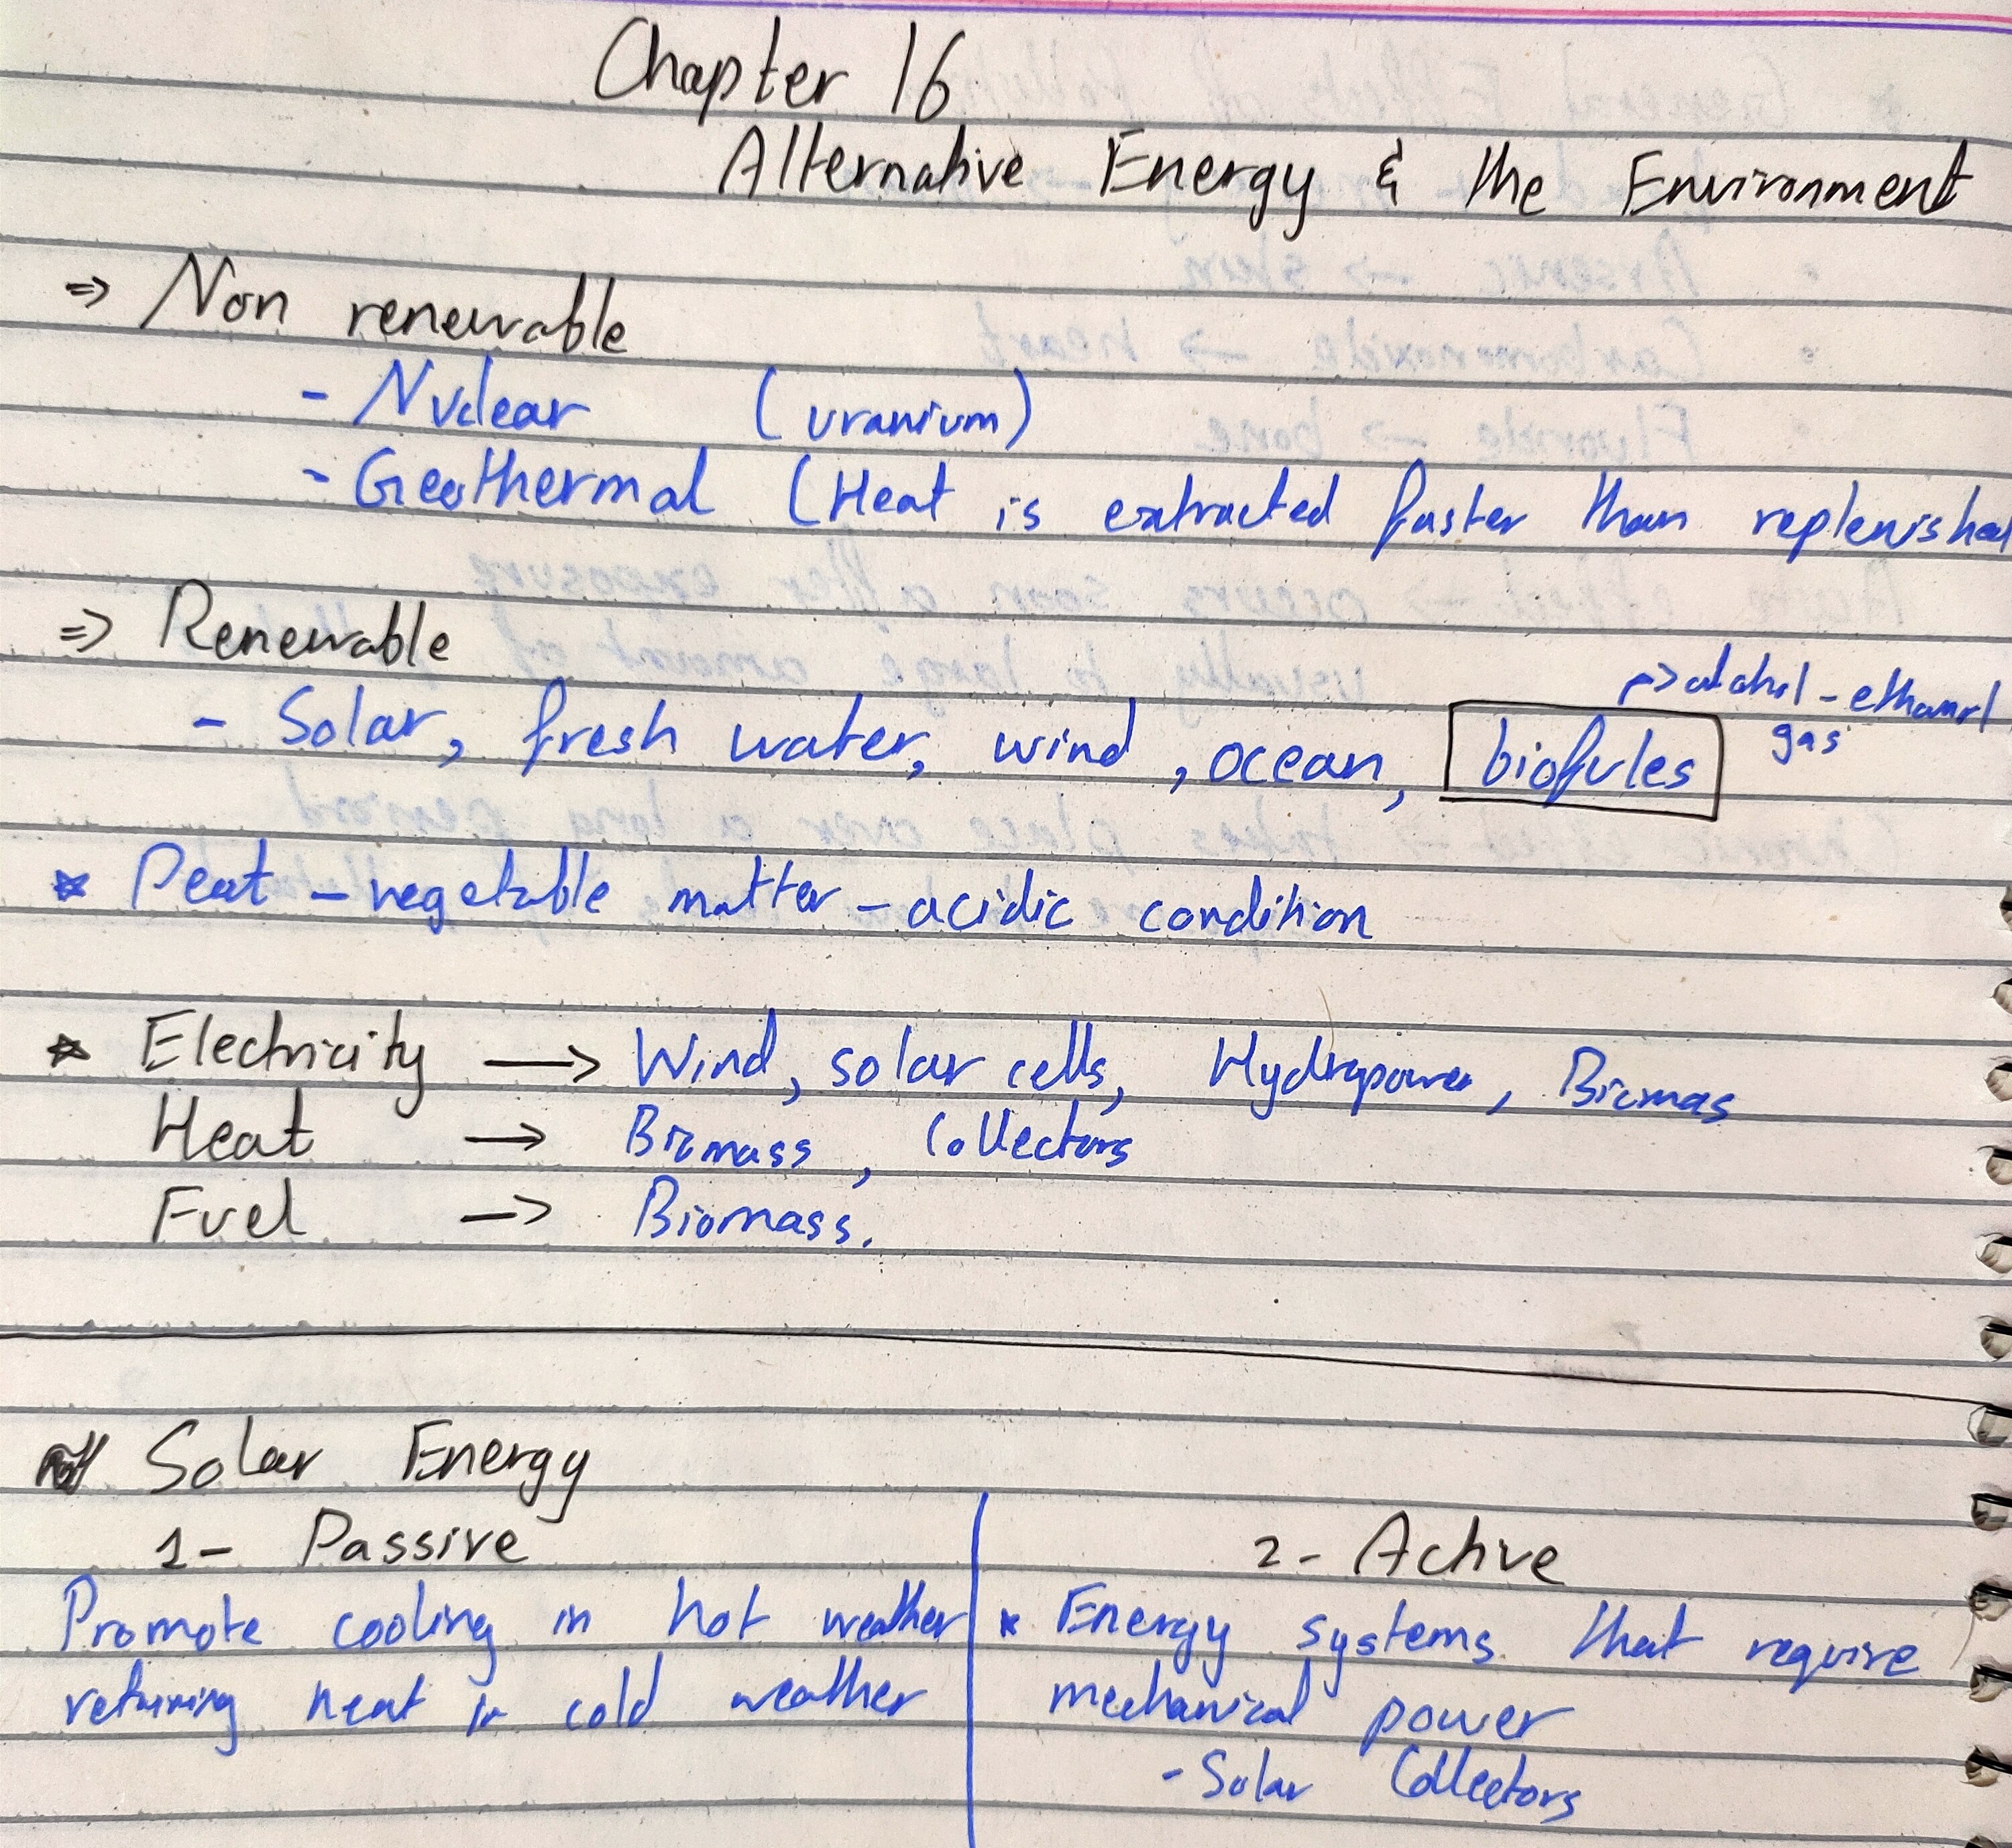 Chapter 16
Alternative Energy & the Environment
⇒ Non renewable
- Nuclear (uranium)
- Geothermal (Heat is extracted faster than replenished
⇒ Renewable
→ alcohol - ethanol
gas
- Solar, fresh water, wind, ocean, biofules
* Peat - vegetable matter - acidic condition
* Electricity → Wind, solar cells, Hydropower, Biomas
Heat → Biomass, Collectors
Fuel → Biomass.
Solar Energy
1- Passive
Promote cooling in hot weather
retaining heat in cold weather
2- Active
* Energy systems that require
mechanical power
- Solar Collectors